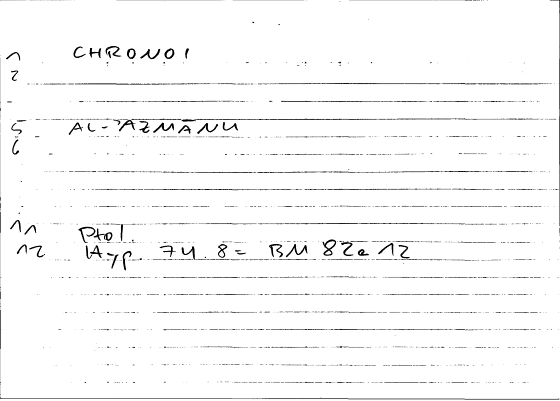 1 CHRONOI
2
5 AL-'AZMĀNU
6
11 Ptol.
12 Hyp. 74.8 = BM 82a12